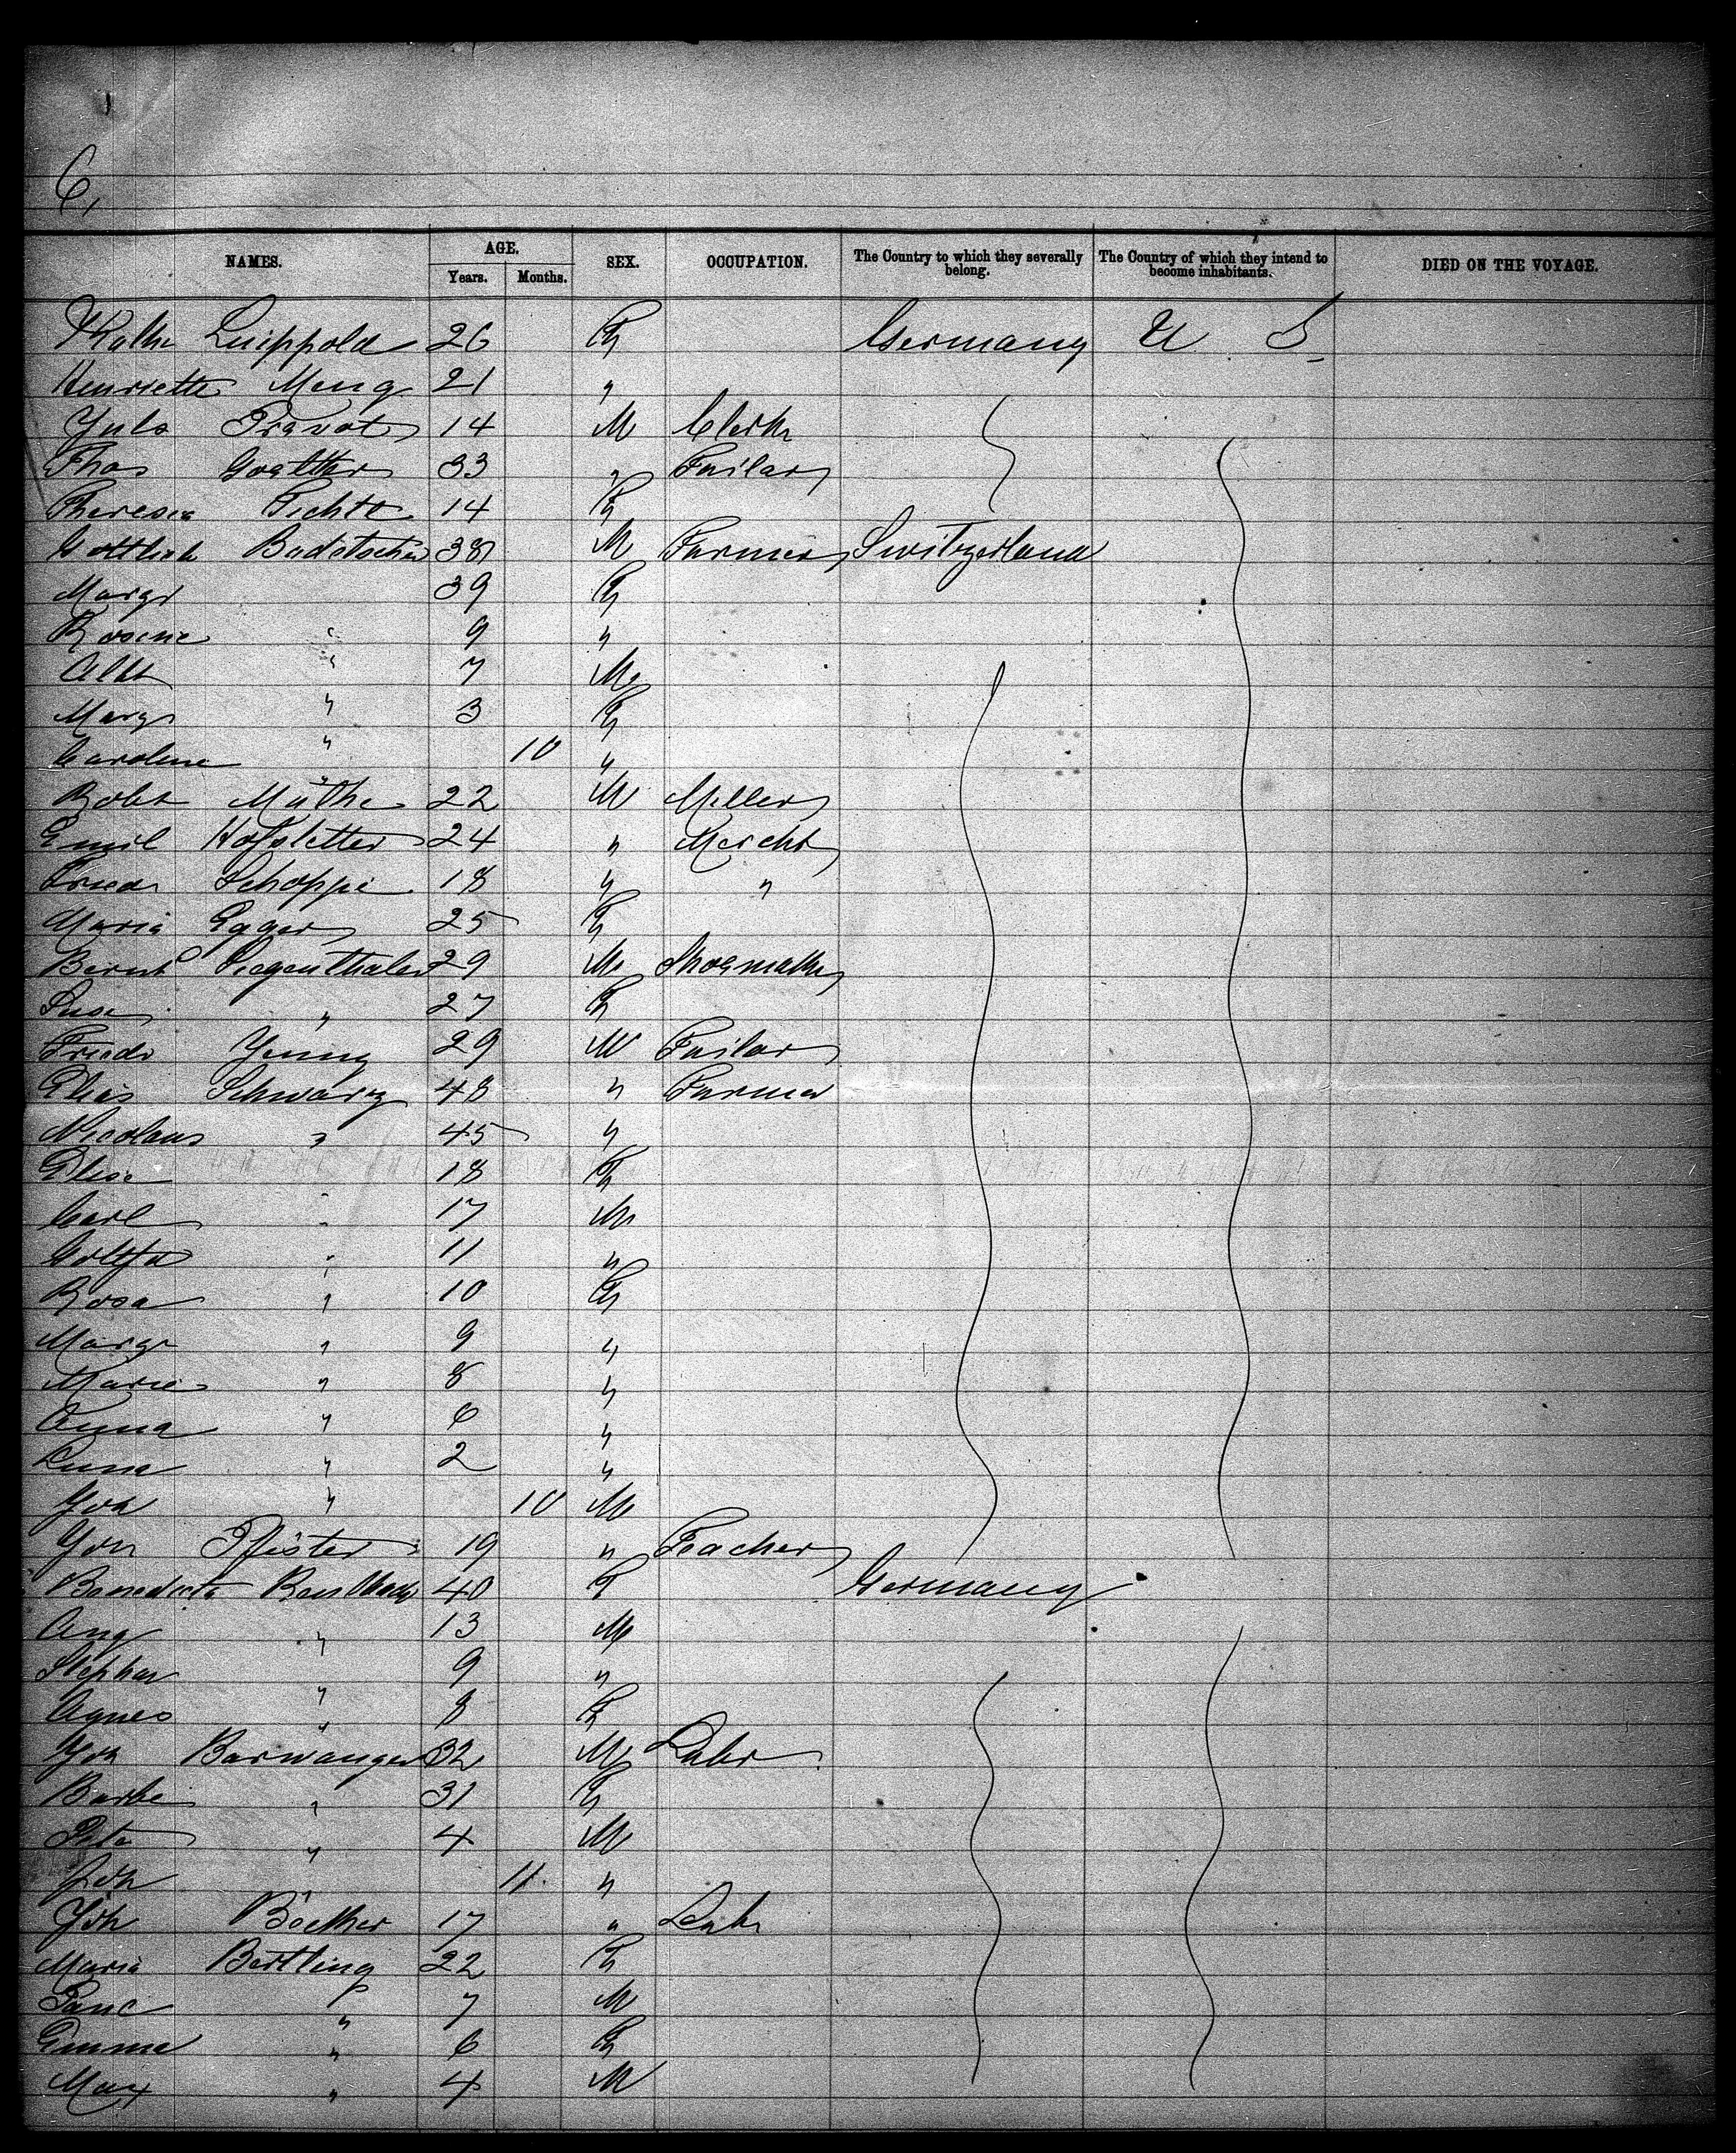 6,
NAMES. AGE. SEX. OCCUPATION. The Country to which they severally belong. The Country of which they intend to become inhabitants. DIED ON THE VOYAGE.
Years. Months.
Luippold 26 F Germany U S
Henriette Meng 21 "
Jules Prevot 14 M Clerk
Thos 33 " Tailor
Theresia Fichte 14 F
Gottlieb 38 M Farmer Switzerland
Margr 39 F
Rosine " 9 "
Albt " 7 M
Margr " 3 F
Caroline " 10 "
Robt Müthe 22 M Miller
Emil Hofstetter 24 " Mercht
Friedr Schoppi 18 " "
Maria Egger 25 F
Siegenthaler 29 M Shoemaker
" 27 F
Friedr Jenny 29 M Tailor
Elias Schwarz 48 " Farmer
Nicolaus " 45 "
Elise 18 F
Carl " 17 M
" 11 "
Rosa " 10 F
Margr " 9 "
Marie " 8 "
Anna " 6 "
" 2 "
Joh " 10 M
Joh Pfister 19 " Teacher
Benedicta 40 F Germany
Aug " 13 M
Stephan " 9 "
Agnes " 8 F
Joh Barwanger 32 M Labr
Barbe " 31 F
" 4 M
Joh " 11 "
Joh 17 " Labr
Maria Bertling 22 F
" 7 M
Emma " 6 F
Max " 4 M